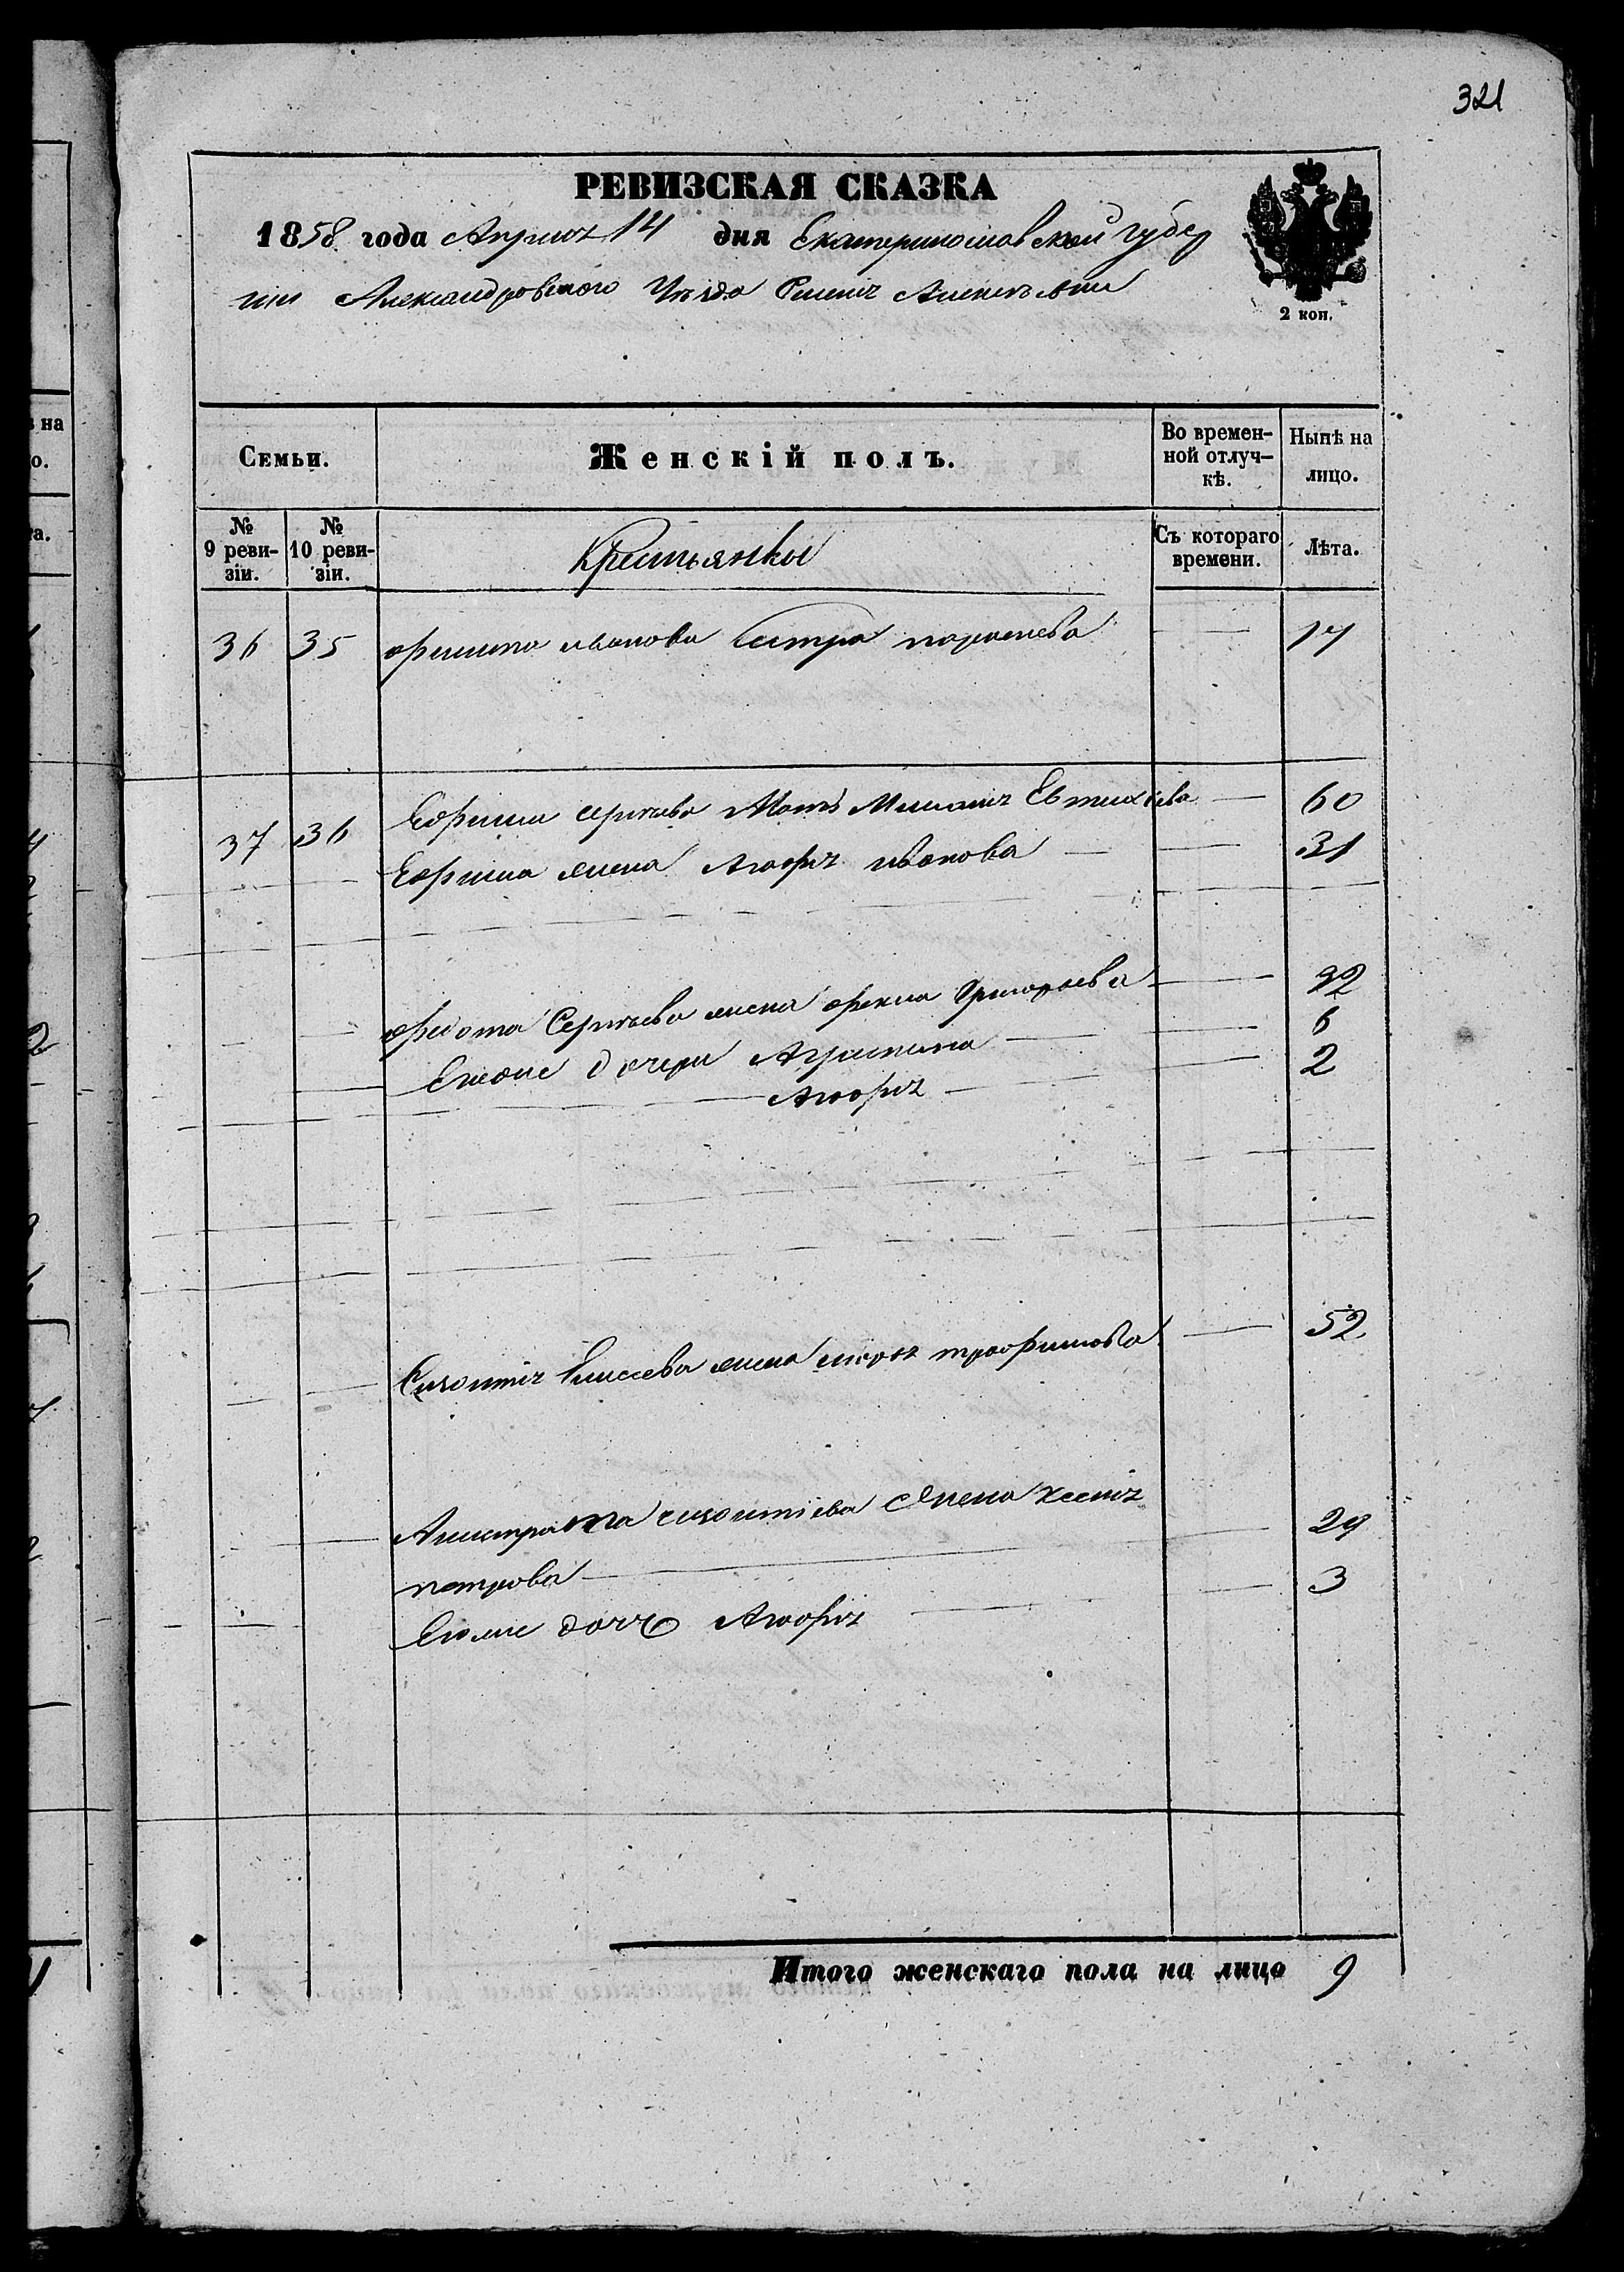 321
РЕВИЗСКАЯ СКАЗКА
1858 года Апреля 14 дня Екатеринославской Губер
нии Александровского Уезда Имения
2 коп.
Семьи.
Женскій полъ.
Во времен-
ной отлуч-
кѣ.
Нынѣ на
лицо.
№
9 реви-
зіи.
№
10 реви-
зіи.
Крестьянки
Съ котораго
времени.
Лѣта.
36 35 Филипа иванова Сестра 17
37 36 Ефима сергиева Мать Маланя Евтихиева 60
Ефима жена Агафия иванова 31
Федота Сергиева жена фекла Григорьева 32
Ево дочери Агрипина 6
Агафия 2
Елисеева жена трофимова 52
Алистрата жена Ксения
петрова 29
Ево дочь Агафия 3
Итого женскаго пола на лицо 9
на
о.
та.